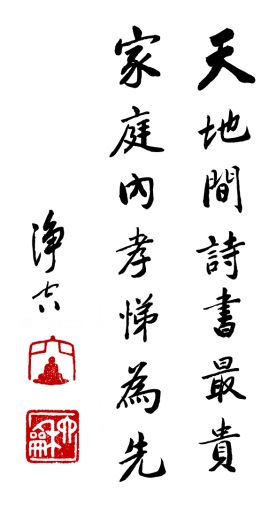 天地間詩書最貴
家庭內孝悌為先
淨空
六和